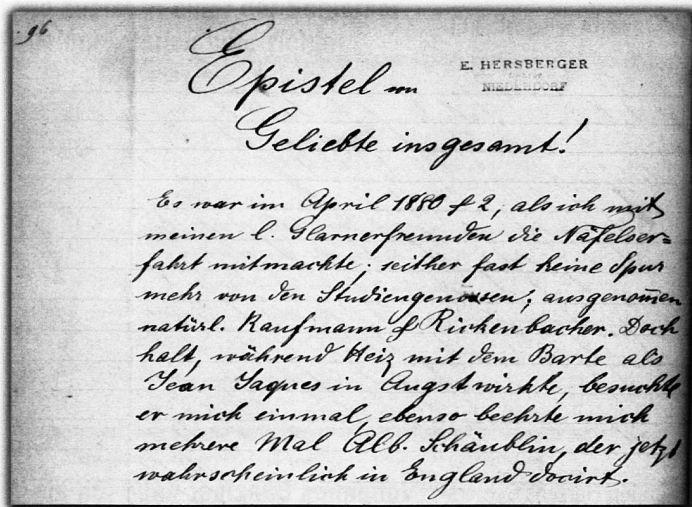 96
E. HERSBERGER
NIEDERDORF
Epistel von
Geliebte insgesamt!
Es war im April 1880 & 2, als ich mit
meinen l. Glarnerfreunden die Näfelser=
fahrt mitmachte; seither fast keine Spur
mehr von den Studiengenossen; ausgenom̅en
natürl. Kaufmann & Rickenbacher. Doch
halt, während Heiz mit dem Barte als
Jean Jaques in Augst wirkte, besuchte
er mich einmal, ebenso beehrte mich
mehrere Mal Alb. Schäublin, der jetzt
wahrscheinlich in England docirt.